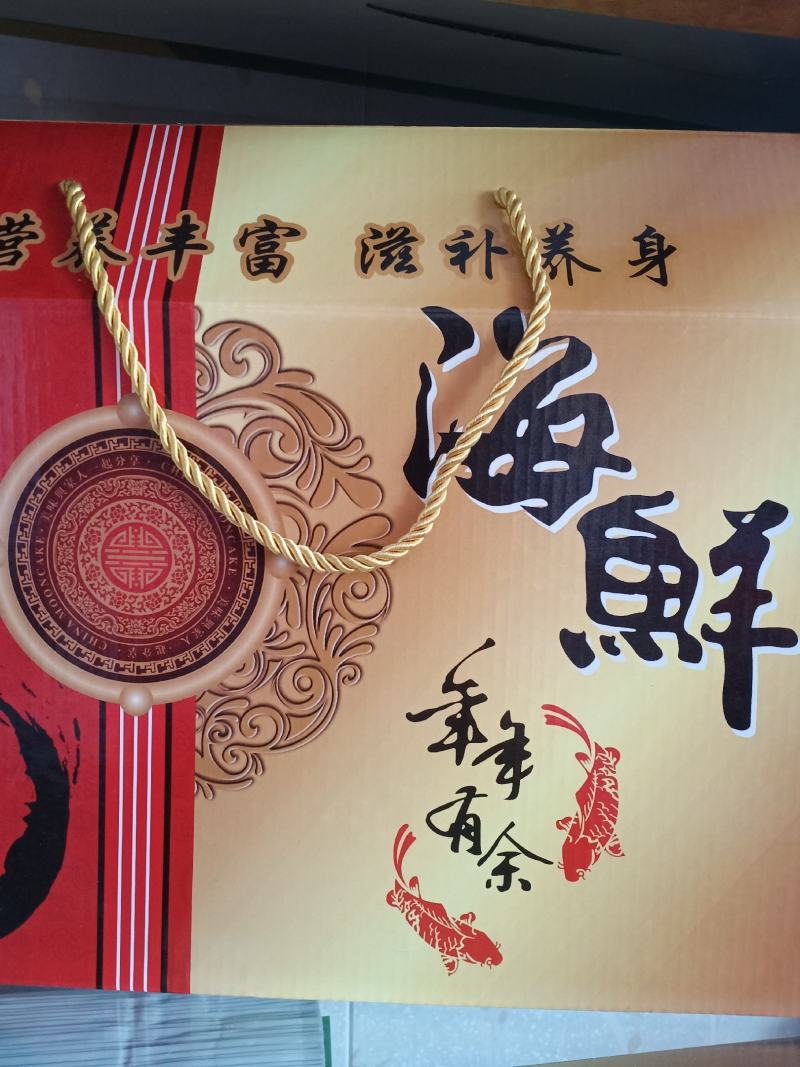 营养丰富 滋补养身
海鮮
年年有余
CHINA MOONCAKE